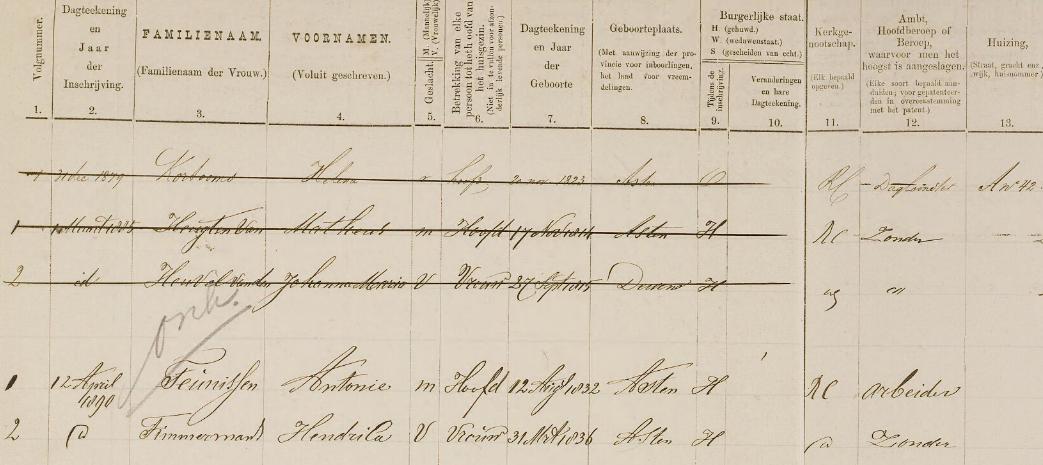 Volgnummer. Dagteekening en Jaar der Inschrijving. FAMILIENAAM. (Familienaam der Vrouw.) VOORNAMEN. (Voluit geschreven.) Geslacht. M. (Mannelijk) V. (Vrouwelijk) Betrekking van elke persoon tot het hoofd van het huisgezin. (Niet in te vullen voor afzonderlijk levende personen.) Dagteekening en Jaar der Geboorte Geboorteplaats. (Met aanwijzing der provincie voor inboorlingen, het land voor vreemdelingen. Burgerlijke staat. H (gehuwd.) W. (weduwenstaat.) S (gescheiden van echt.) Tijdens de inschrijving. Veranderingen en hare Dagteekening. Kerkgenootschap. (Elk bepaald opgeven.) Ambt, Hoofdberoep of Beroep, waarvoor men het hoogst is aangeslagen. (Elke soort bepaald aanduiden; voor gepatenteerden in overeenstemming met het patent.) Huizing, (Straat, gracht enz., wijk, huisnummer)
1. 2. 3. 4. 5. 6. 7. 8. 9. 10. 11. 12. 13.
1 dec 1879 Helena v hoofd 20 nov 1823 Asten O RC Daglondster A nº 42
1 Hoogten van Matheus m Hoofd 17 Nov 1814 Asten H RC Zonder
2 id Heuvel van den Johanna Maria V Vrouw 27 Sept 1815 Deurne H
onb.
1 12 April 1890 Teunissen Antonie m Hoofd 12 1832 Asten H RC arbeider
2 Timmermans Hendrika V Vrouw 31 Mrt 1836 Asten H Zonder